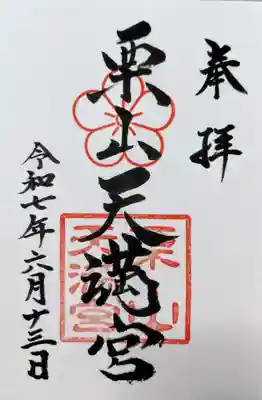 奉拝
栗山天満宮
令和七年六月十三日
栗山
天満宮